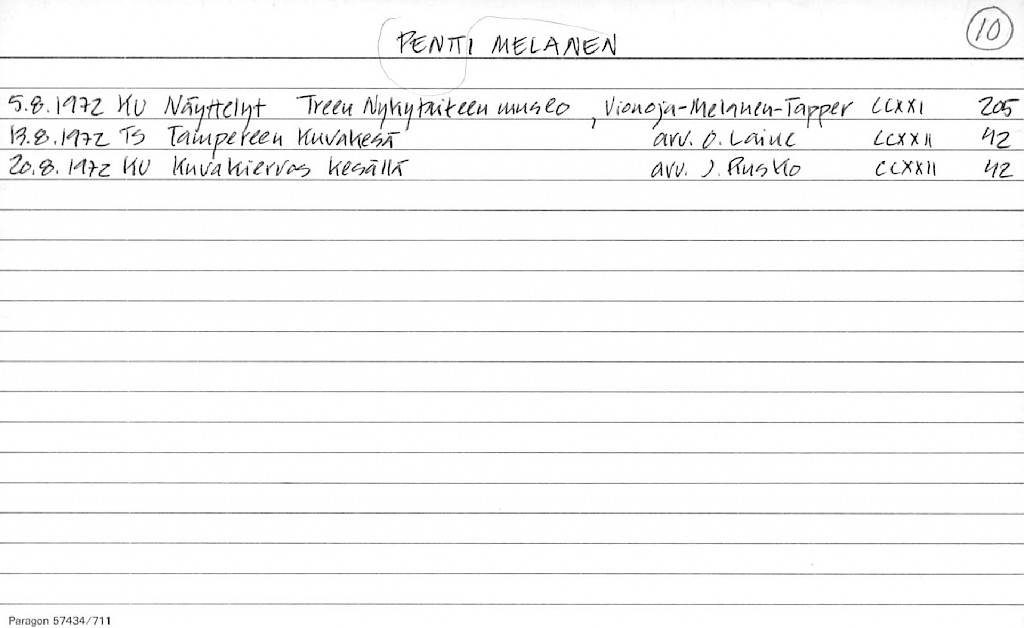 10
PENTTI MELANEN
5.8.1972 KU Näyttelyt Treen Nykytaiteen museo, Vionoja-Melanen-Tapper CCXXI 205
13.8.1972 TS Tampereen Kuvakesä arv. O. Laine CCXXII 42
20.8.1972 KU Kuvakierros kesällä arv. J. Rusko CCXXII 42
Paragon 57434/711